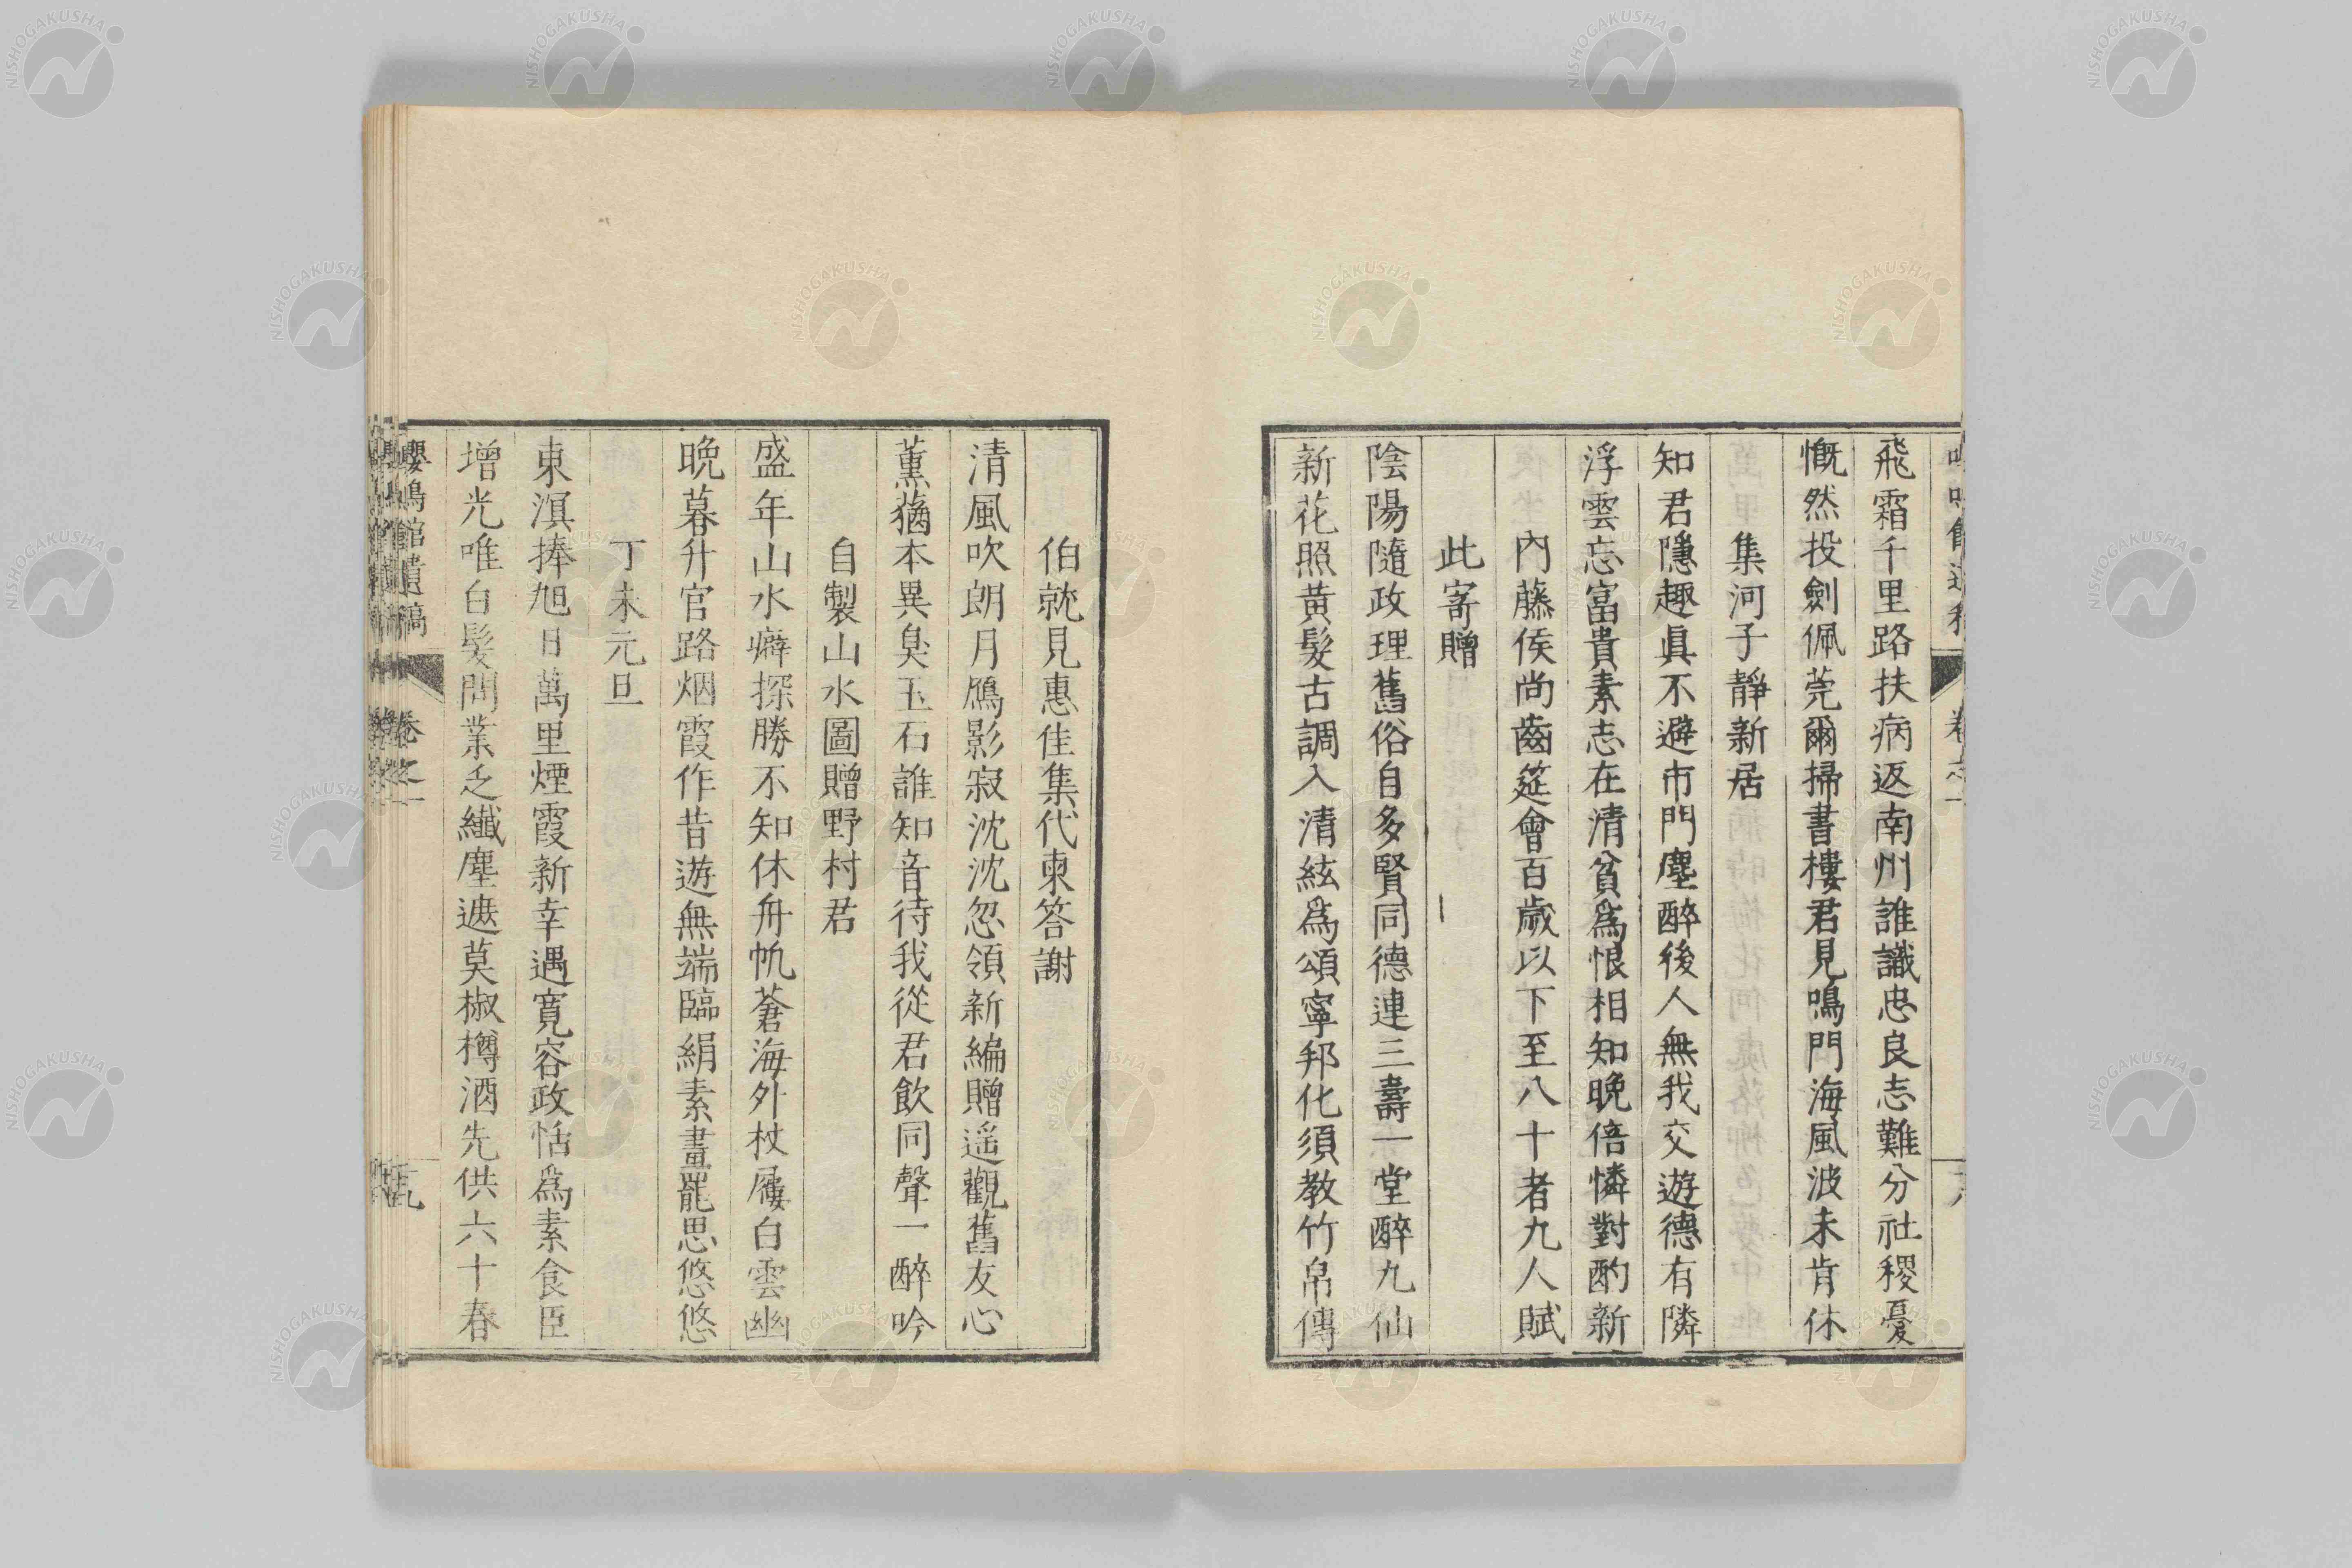 飛霜千里路扶病返南州誰識忠良志難分社稷憂
慨然投劍佩莞爾掃書樓君見鳴門海風波未肯休
集河子靜新居
知君隱趣眞不避市門塵醉後人無我交遊德有隣
浮雲忘富貴素志在清貧爲恨相知晚倍憐對酌新
內藤侯尚齒筵會百歲以下至八十者九人賦
此寄贈
陰陽隨政理舊俗自多賢同德連三壽一堂醉九仙
新花照黃髮古調入清絃爲頌寧邦化須教竹帛傳
伯就見惠佳集代柬答謝
清風吹朗月鴈影寂沈沈忽領新編贈遥觀舊友心
薰蕕本異臭玉石誰知音待我從君飲同聲一醉吟
自製山水圖贈野村君
盛年山水癖探勝不知休舟帆蒼海外杖屨白雲幽
晚暮升官路烟霞作昔遊無端臨絹素畫罷思悠悠
丁未元旦
東溟捧旭日萬里煙霞新幸遇寬容政恬爲素食臣
增光唯白髮問業乏纖塵遮莫椒樽酒先供六十春
嚶鳴館遺稿 卷之一
NISHOGAKUSHA